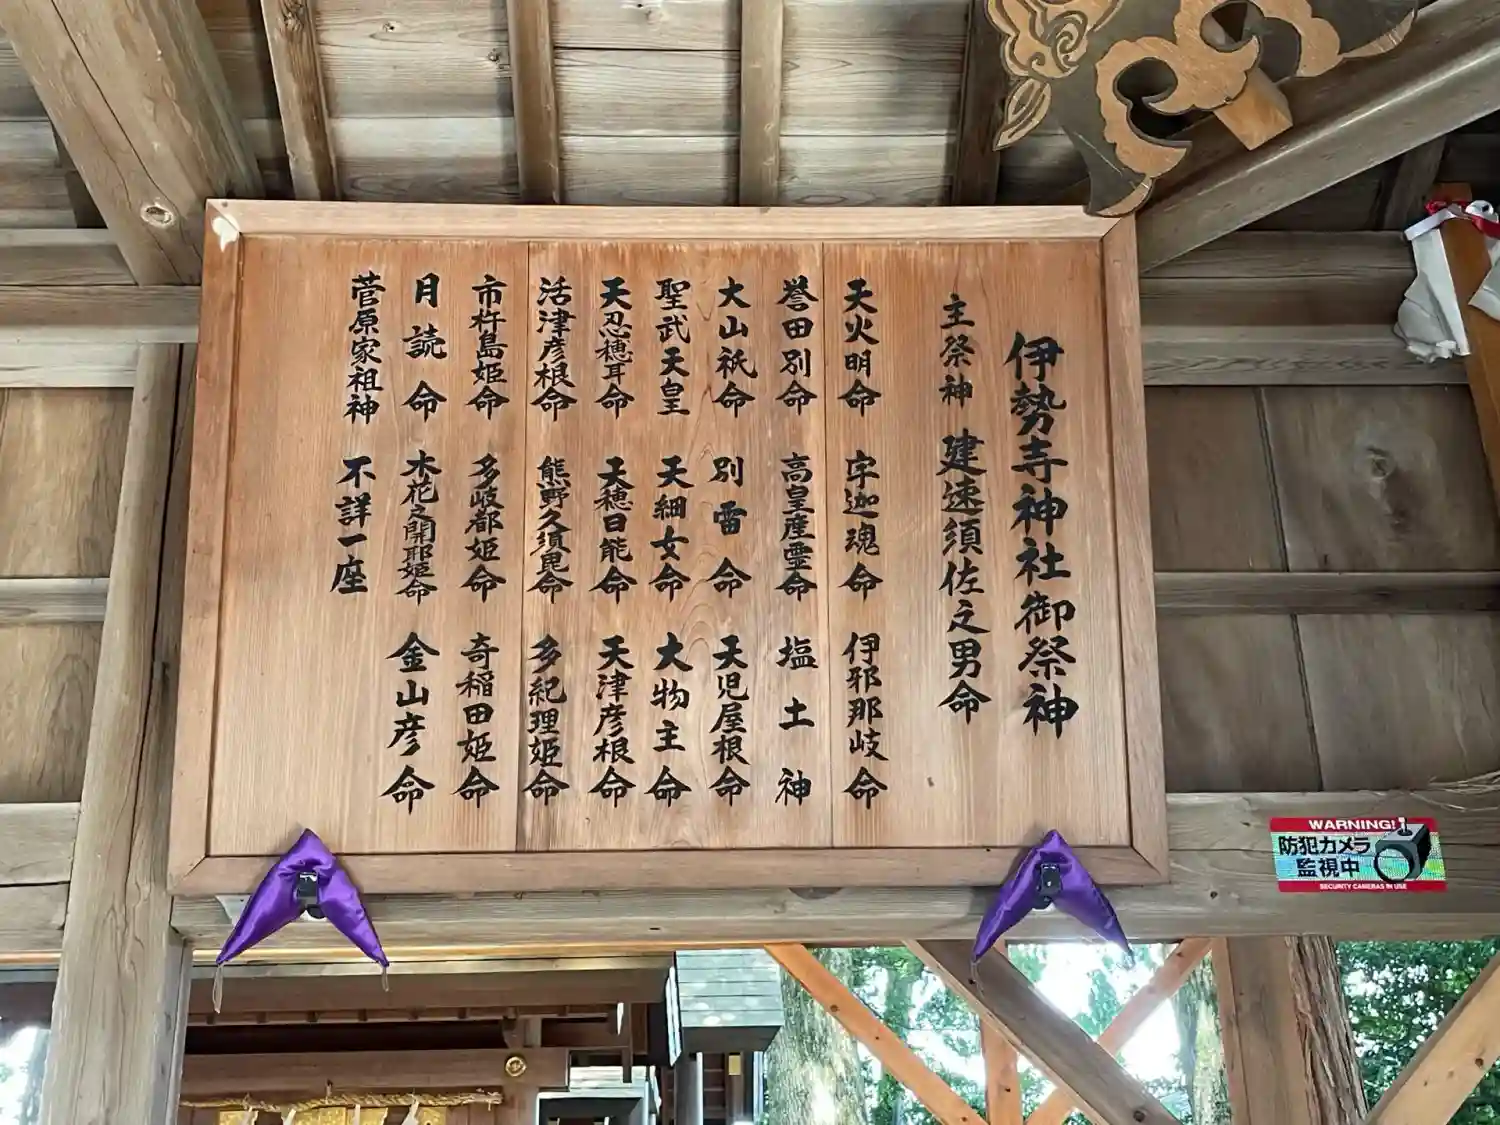 伊勢寺神社御祭神
主祭神 建速須佐之男命
天火明命 宇迦魂命 伊邪那岐命
誉田別命 高皇産霊命 塩土神
大山祇命 別雷命 天児屋根命
聖武天皇 天細女命 大物主命
天忍穂耳命 天穂日能命 天津彦根命
活津彦根命 熊野久須毘命 多紀理姫命
市杵島姫命 多岐都姫命 奇稲田姫命
月読命 木花之開耶姫命 金山彦命
菅原家祖神 不詳一座
WARNING!
防犯カメラ
監視中
SECURITY CAMERAS IN USE